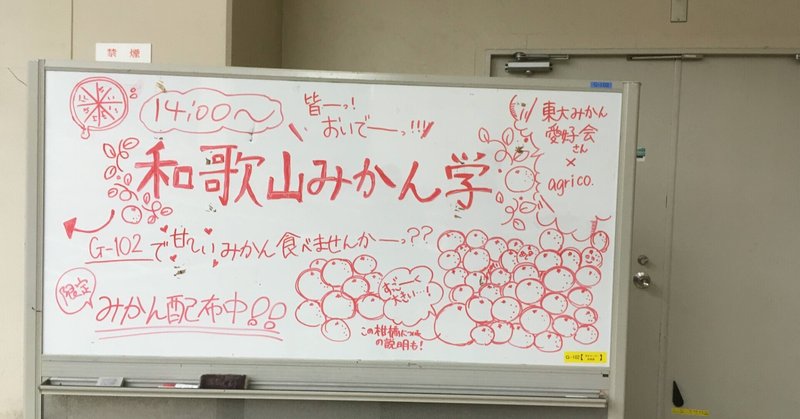 禁煙
G-102
14:00〜
皆ーっ!
おいでーっ!!!
東大みかん
愛好会
さん
×
agrico.
和歌山みかん学
G-102で甘〜いみかん食べませんかーっ??
限定
みかん配布中!!
すごーく
大きい…!
この柑橘について
の説明も!
G-102